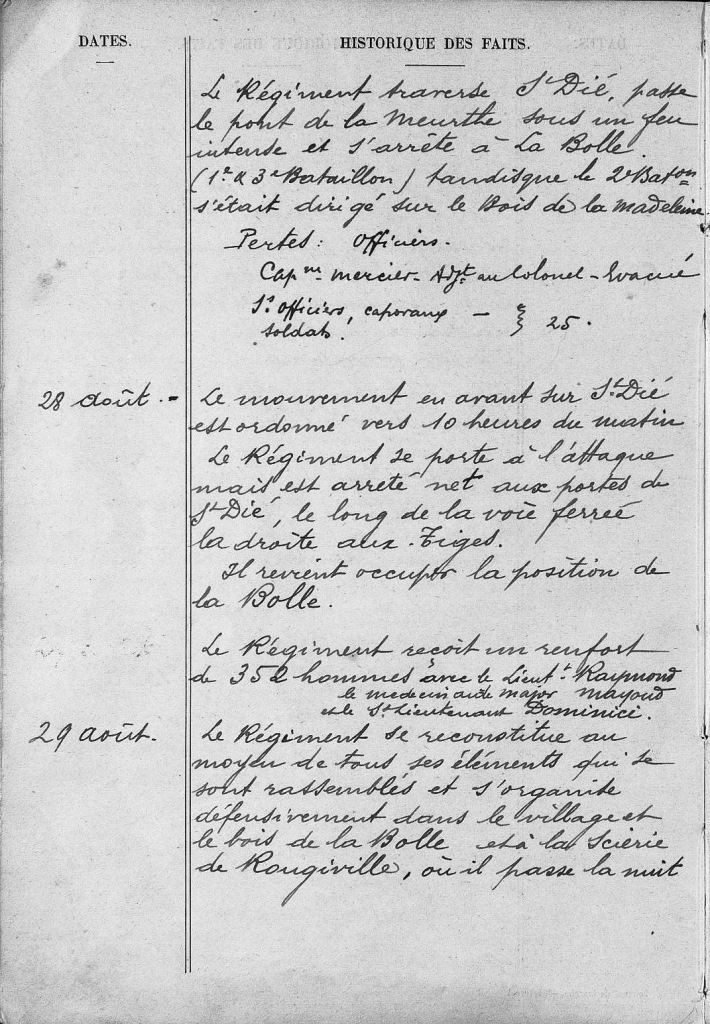 DATES.
HISTORIQUE DES FAITS.
Le Régiment traverse St Dié, passe
le pont de la Meurthe sous un feu
intense et s'arrête à La Bolle.
(1er & 3e Bataillon) tandisque le 2e Baton
s'était dirigé sur le Bois de la Madeleine
Pertes: Officiers.
Capne Mercier - Adjt au Colonel - Evacué
Ss officiers, caporaux — } 25.
soldats.
28 août. - Le mouvement en avant sur St Dié
est ordonné vers 10 heures du matin
Le Régiment se porte à l'attaque
mais est arreté net aux portes de
St Dié, le long de la voie ferreé
la droite aux Tiges.
Il revient occuper la position de
la Bolle.
Le Régiment reçoit un renfort
de 352 hommes avec le Lieutt Raymond
le medecin aide major Mayoud
et le St Lieutenant Dominici.
29 août. Le Régiment se reconstitue au
moyen de tous ses éléments qui se
sont rassemblés et s'organise
défensivement dans le village et
le bois de la Bolle et à la Scierie
de Rougiville, où il passe la nuit